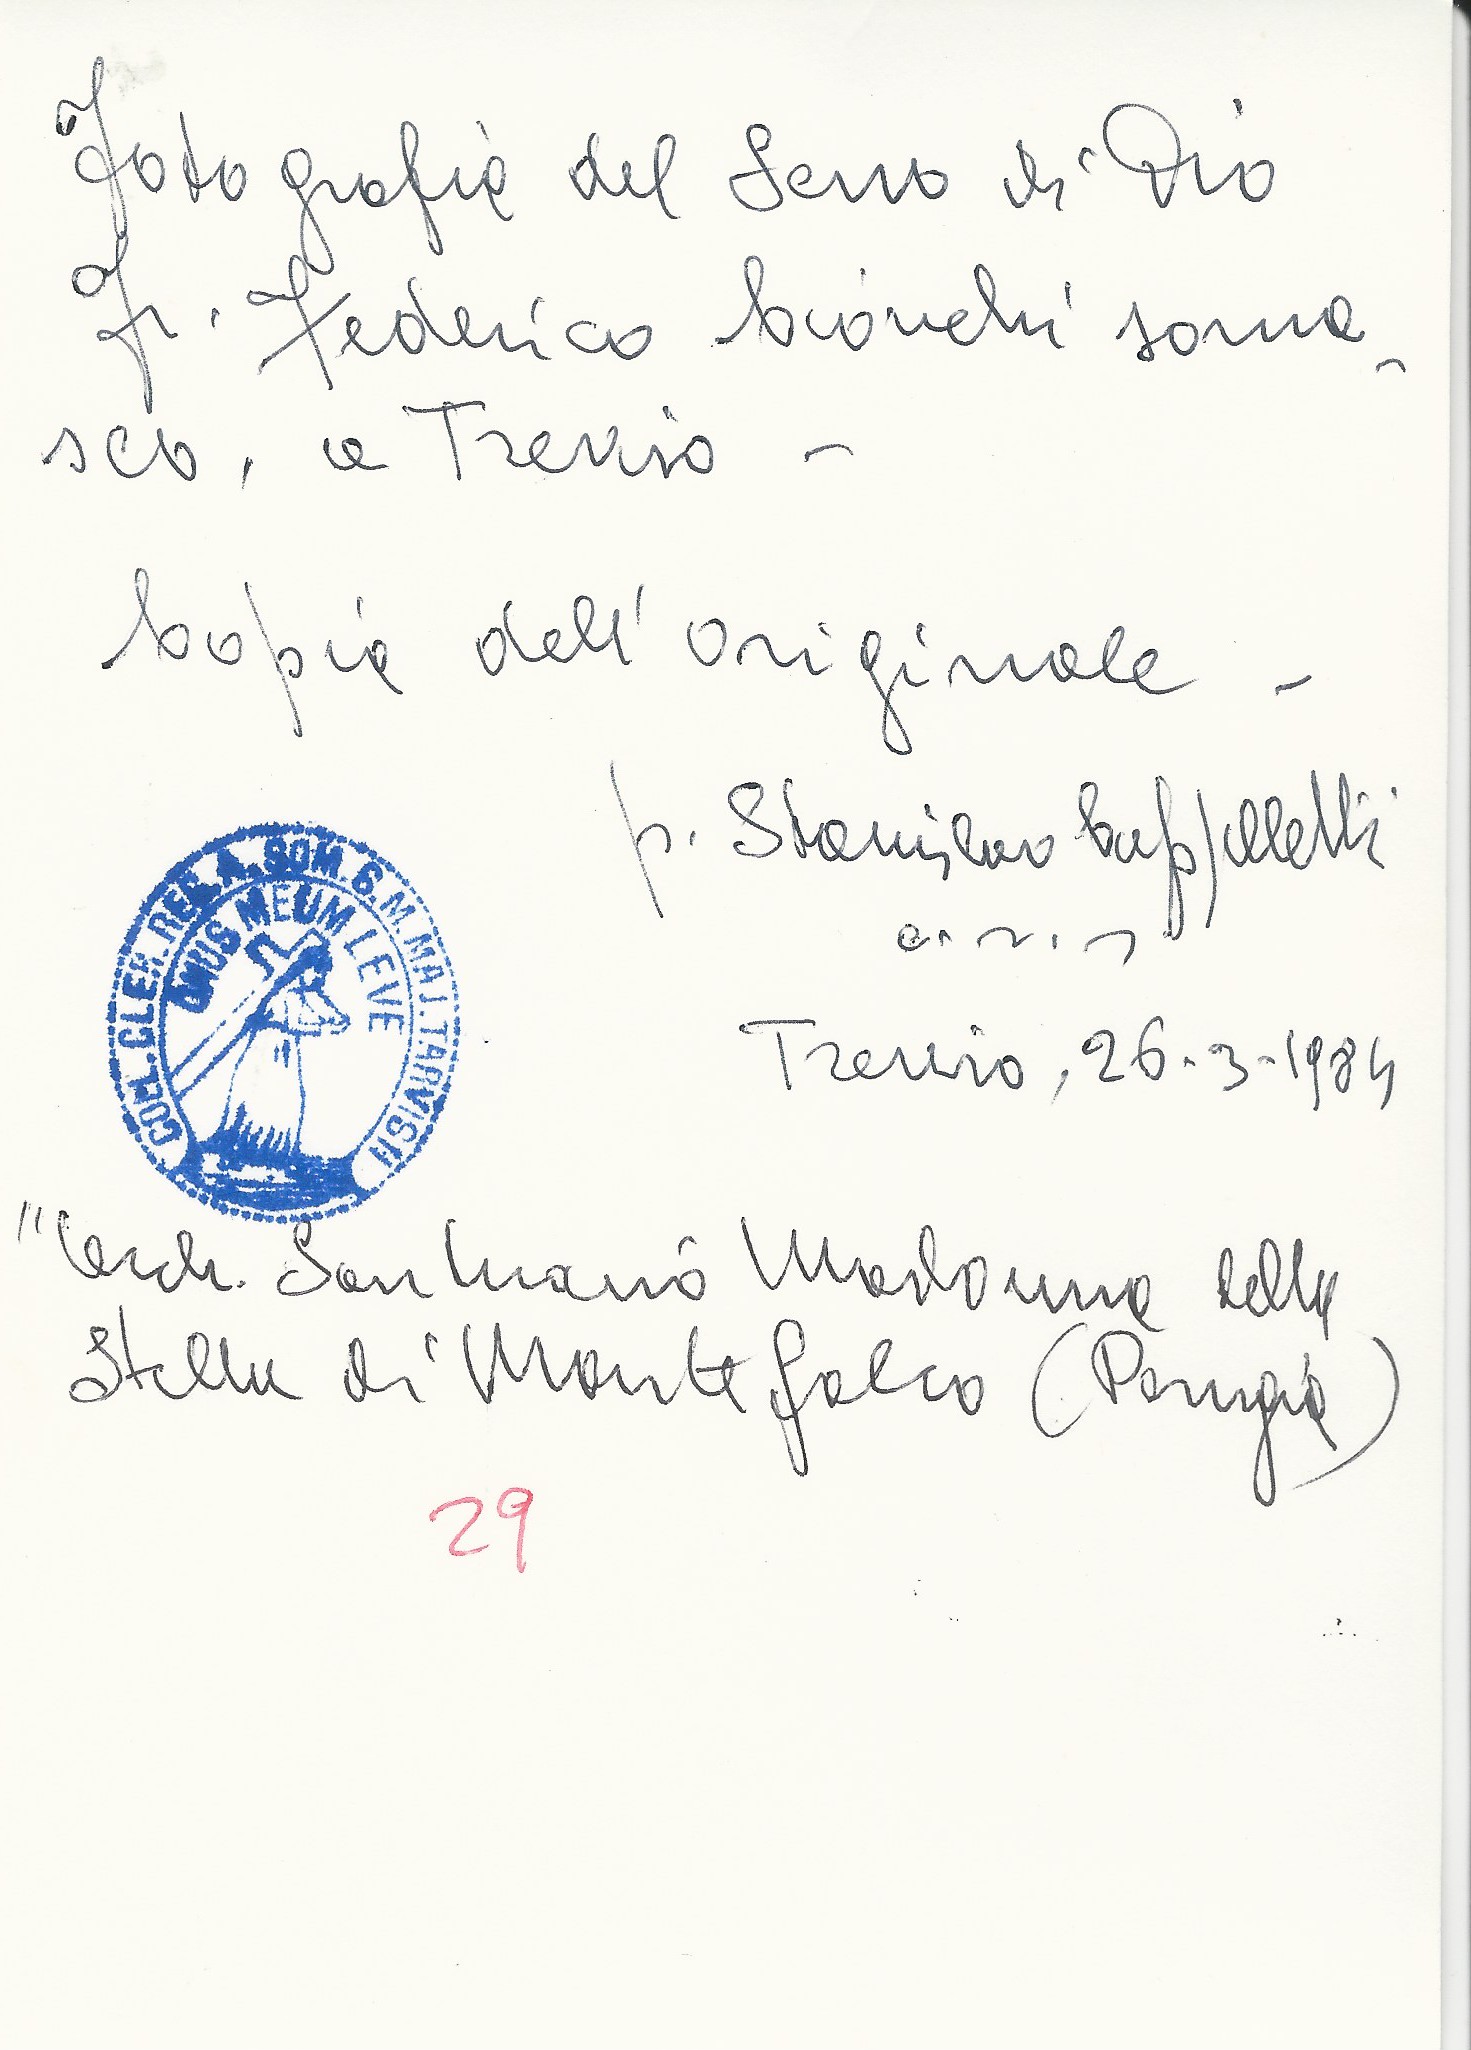 Fotografia del Servo di Dio
Fr. Federico Cionchi soma-
sco, a Treviso -
Copia dell'originale -
p. Stanislao Cappelletti
c. r. s.
COLL. CLER. REG. A SOM. S. M. MAJ. TARVISII
ONUS MEUM LEVE
Treviso, 26-3-1984
Santuario Madonna della
Stella di Montefalco (Perugia)
29